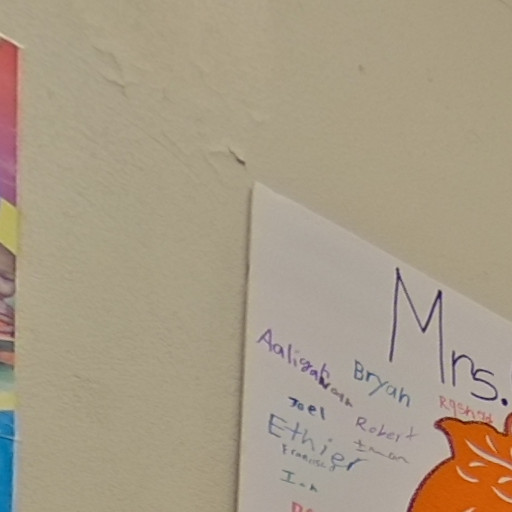 Mrs.
Aaligah
Bryan
Rashad
Joel
Robert
Ethier
Iman
Francisco
Ian